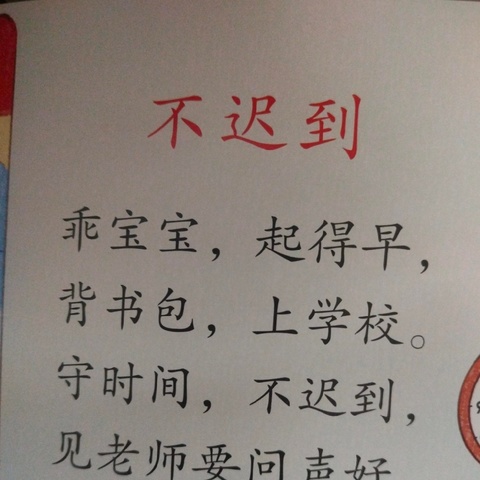 不迟到
乖宝宝，起得早，
背书包，上学校。
守时间，不迟到，
见老师要问声好